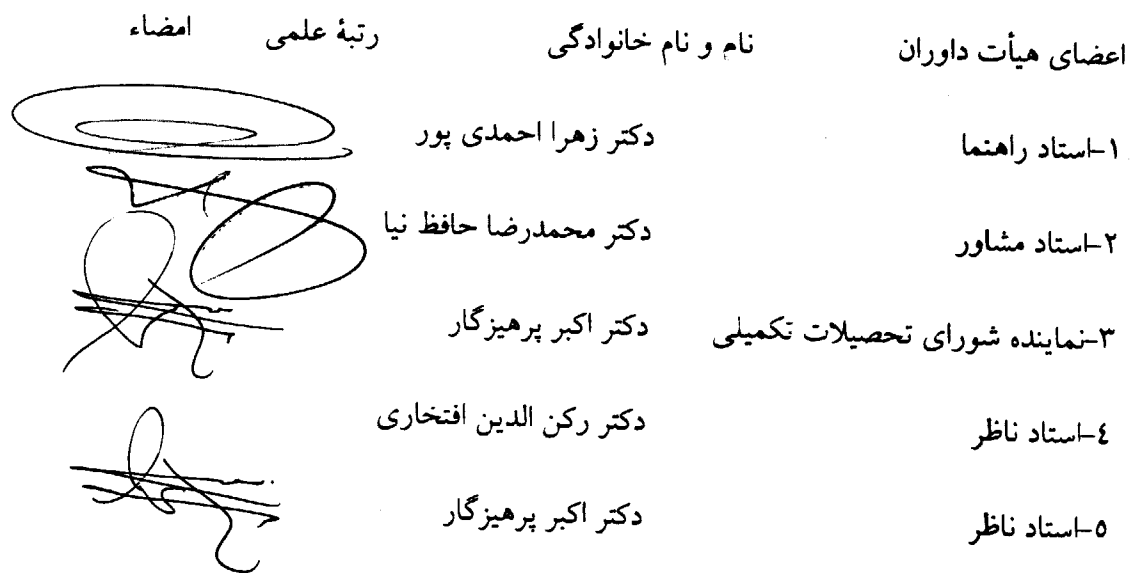 اعضای هیأت داوران نام و نام خانوادگی رتبۀ علمی امضاء
۱-استاد راهنما دکتر زهرا احمدی پور
۲-استاد مشاور دکتر محمدرضا حافظ نیا
۳-نماینده شورای تحصیلات تکمیلی دکتر اکبر پرهیزگار
٤-استاد ناظر دکتر رکن الدین افتخاری
۵-استاد ناظر دکتر اکبر پرهیزگار